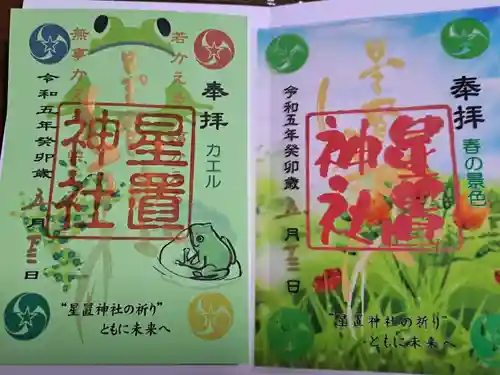 奉拝
カエル
若かえる
無事かえる
星置神社
令和五年癸卯歳
月
日
"星置神社の祈り"
ともに未来へ
奉拝
春の景色
星置神社
令和五年癸卯歳
月
日
"星置神社の祈り"
ともに未来へ